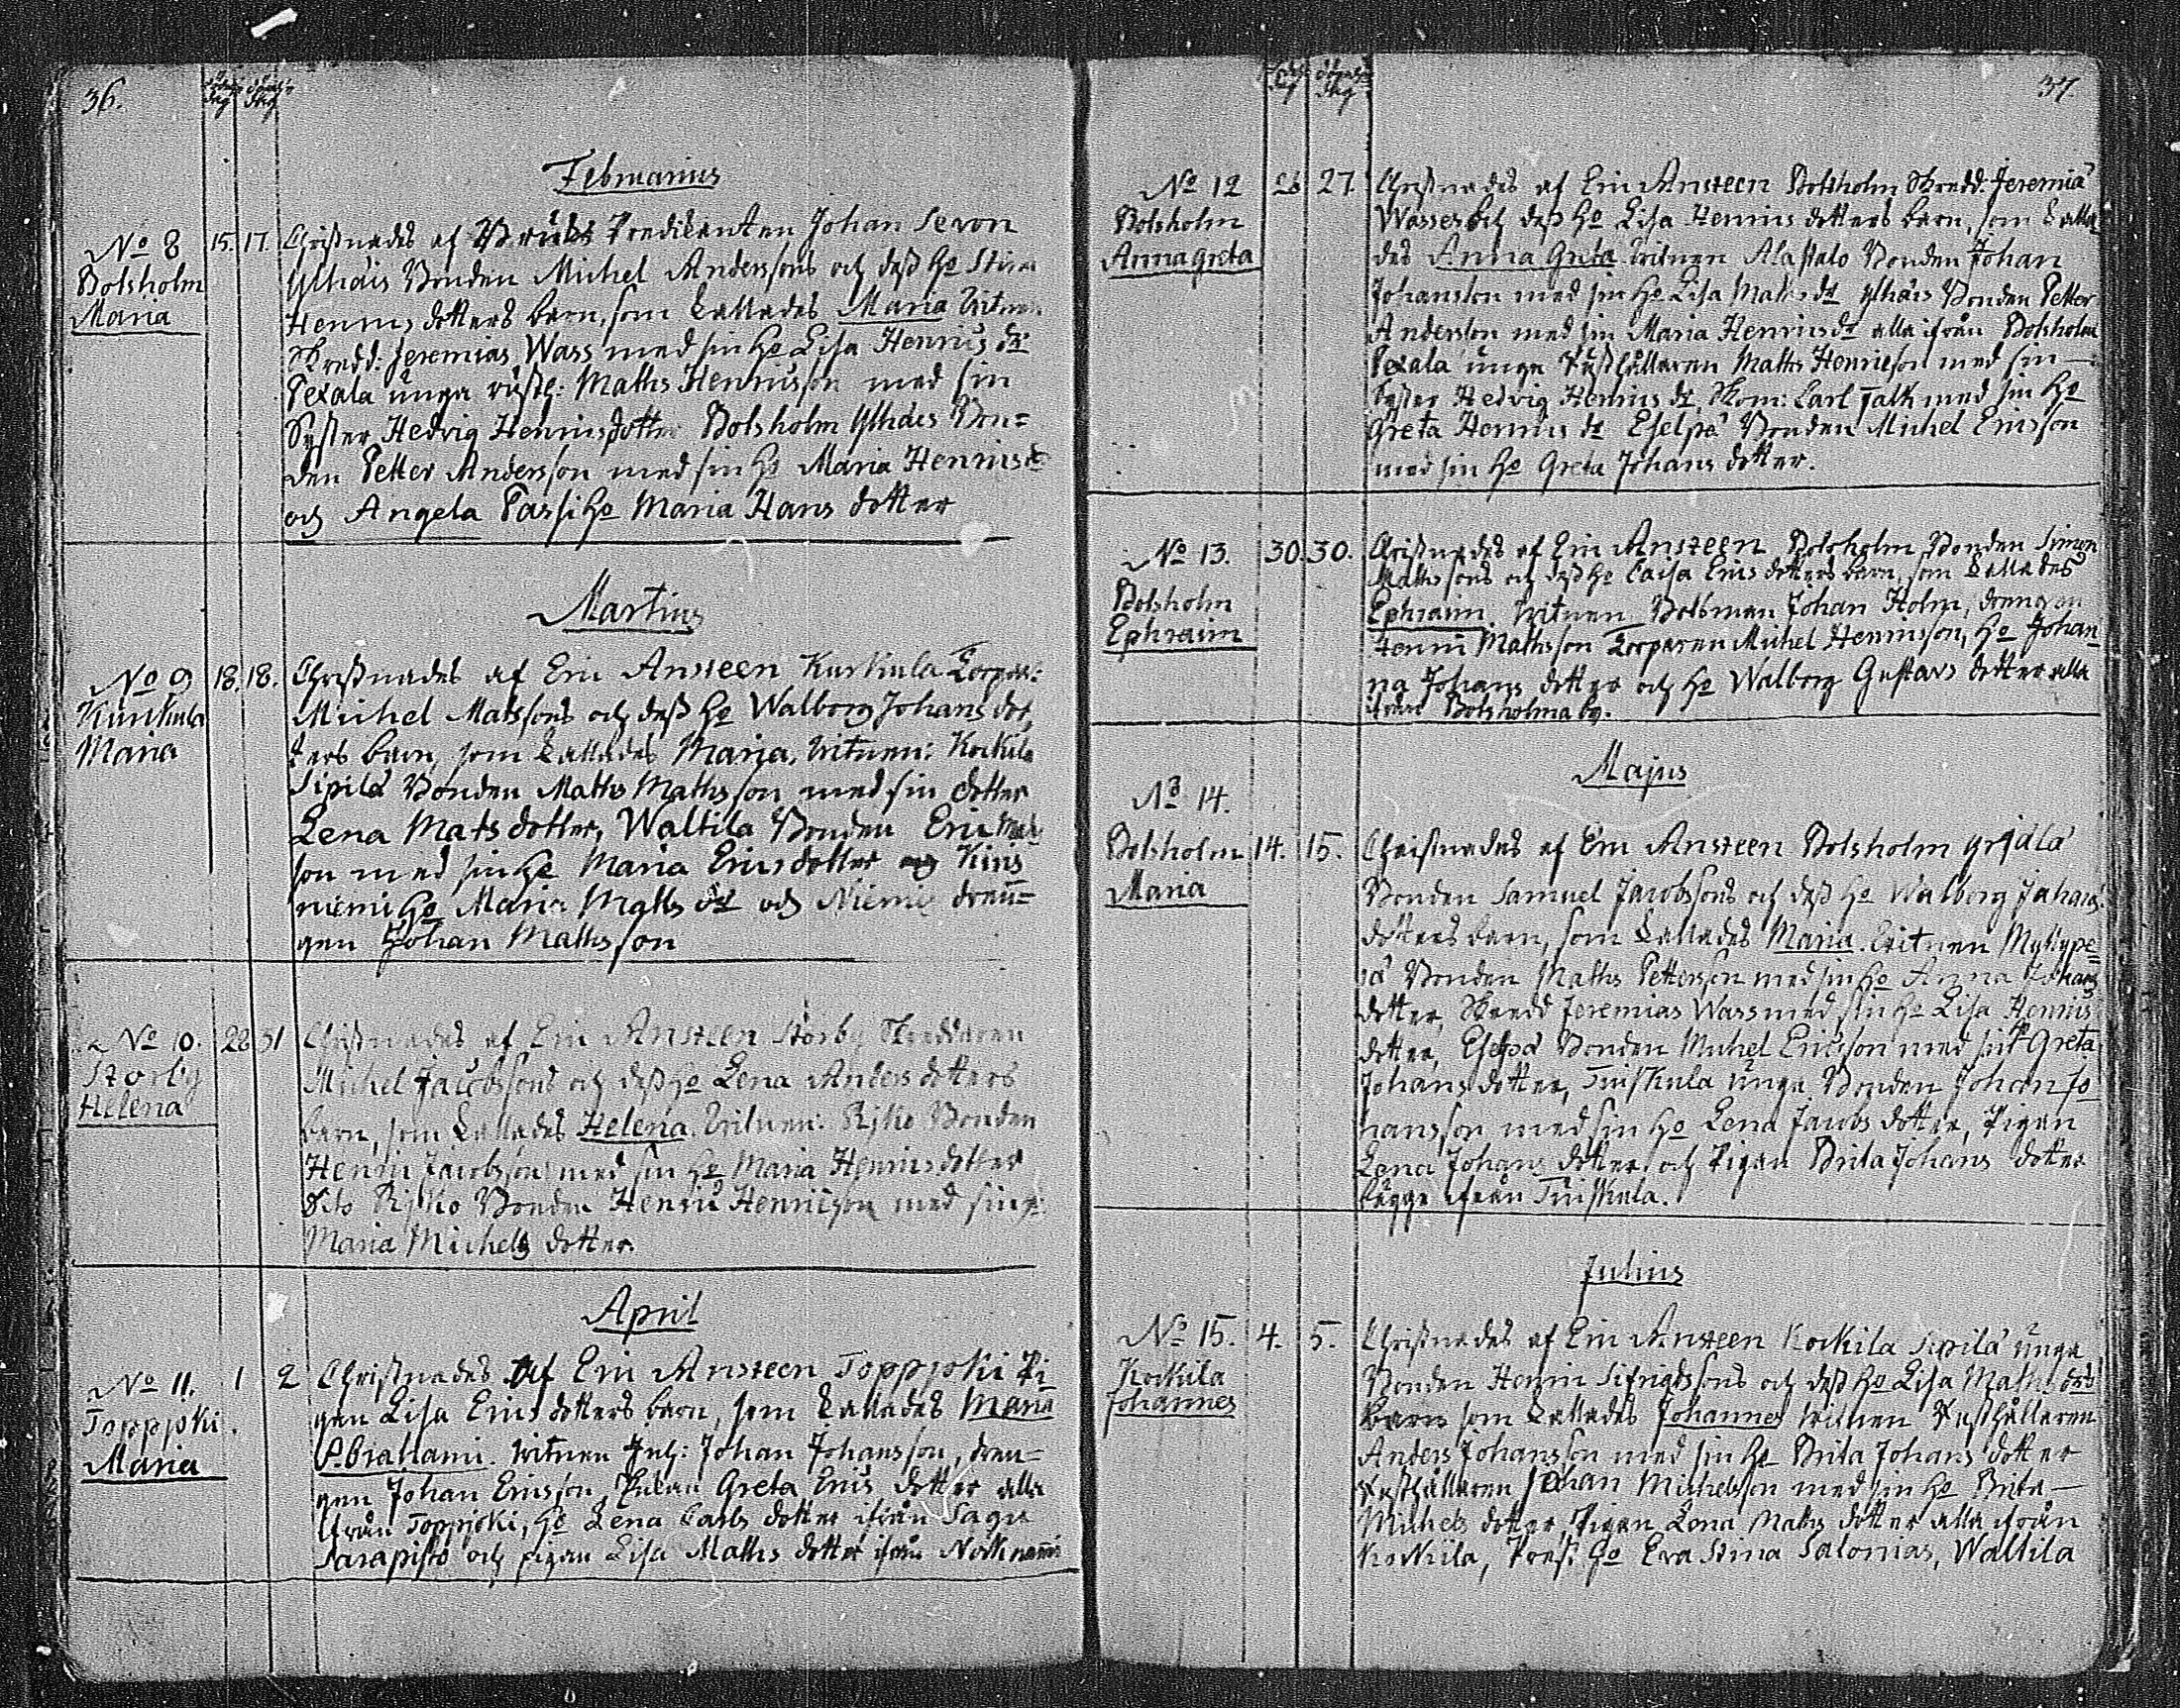 36.
Födelse dag
döpelse dag
Februarius
No 8
Bolsholm
Maria
15. 17.
Christnades af Predikanten Johan Sevon
Ylhäis Bonden Michel Anderssons och dess Ho Stina
Henrics dotters barn, som kallades Maria witnen
Skredd: Jeremias Wass med sin Ho Lisa Henrics dr
Pexala unga rusth: Matts Henricsson med sin
Syster Hedvig Henricsdotter Bolsholm Ylhäis Bon=
den Petter Andersson med sin Ho Maria Henrics dr
och Angela Passi Ho Maria Hans dotter
Martius
No 9
Kurkula
Maria
18. 18.
Christnades af Eric Ansteen Kurkula Torpar:
Michel Matssons och dess Ho Walborg Johans dot
ters barn, som kallades Maria, witnen: Kockila
Sipilä Bonden Matts Mathsson med sin dotter
Lena Mats dotter, Waltila Bonden Eric Mats
son med sin Ho Maria Erics dotter og Kins
niemi Ho Maria Matts dr och Niemis dren=
gen Johan Mathsson
No 10.
Storby
Helena
28 31
Christnades af Eric Ansteen Storby Skreddaren
Michel Jacobssons och dess Ho Lena Anders dotters
barn, som kallades Helena. witnen: Rijko Bonden
Henric Jacobsson med sin Ho Maria Henrics dotter
Rijko Bonden Henric Henricson med sin Ho
Maria Michels dotter.
April
No 11.
Toppjoki.
Maria
1 2
Christnades af Eric Ansteen Toppjoki Pi-
gan Lisa Erics dotters barn, som kallades Maria
Abrahami. witnen Inh: Johan Johansson, dren-
gen Johan Ericson, Enkan Greta Erics dotter alla
ifrån Toppjoki, Ho Lena Carls dotter ifrån Sagu
Sarapisto och pigan Lisa Maths dotter ifrån
37
Födelse dag
döpelse dag
No 12
Bolsholm
Anna Greta
26 27.
Christnades af Eric Ansteen Bolsholm Skredd: Jeremia
Wasses och dess Ho Lisa Henrics dotters barn, som kalla
des Anna Greta witnen Alastalo Bonden Johan
Johansson med sin Ho Lisa Matts dr Ylhäis Bonden Petter
Andersson med sin Maria Henricsdr alla ifrån Bolsholm
Pexala unga Rusthållaren Matts Henricson med sin —
Syster Hedvig Henrics dr, Skom: Carl Falk med sin Ho
Greta Henrics dr Eselpä Bonden Michel Ericsson
med sin Ho Greta Johans dotter.
No 13.
Bolsholm
Ephraim
30. 30.
Christnades af Eric Ansteen Bolsholm Bonden Simon
Mathssons och dess Ho Caisa Erics dotters barn, som kallades
Ephraim. witnen Båtsman Johan Holm, drengen
Henric Mathsson Torparen Michel Henricsson, Ho Johan
na Johans dotter och Ho Walborg Gustavs dotter alla
ifrån Bolsholma by.
Majus
No 14.
Bolsholm
Maria
14. 15.
Christnades af Eric Ansteen Bolsholm Yrjälä
Bonden Samuel Jacobssons och dess Ho Walborg Johans
dotters barn, som kallades Maria. witnen Myllype=
rä Bonden Maths Petterson med sin Ho Anna Johans
dotter, Skredd Jeremias Wass med sin Ho Lisa Henrics
dotter, Eselpä Bonden Michel Ericson med sin Ho Greta
Johans dotter, Tuiskula unga Bonden Johan Jo
hansson med sin Ho Lena Jacobs dotter, Pigan
Lena Johans dotter och Pigan Brita Johans dotter
bägge ifrån Tuiskula.
Julius
No 15.
Kockila
Johannes
4. 5.
Christnades af Eric Ansteen Kockila Sipilä unga
Bonden Henric Sifridssons och dess Ho Lisa Maths drs
barn som kallades Johannes witnen Rusthållaren
Anders Johansson med sin Ho Brita Johans dotter
Rusthållaren Johan Michelsson med sin Ho Brita —
Michels dotter, Pigan Lena Maths dotter alla ifrån
Kockila, Prest Ho Eva Stina Salonias, Waltila